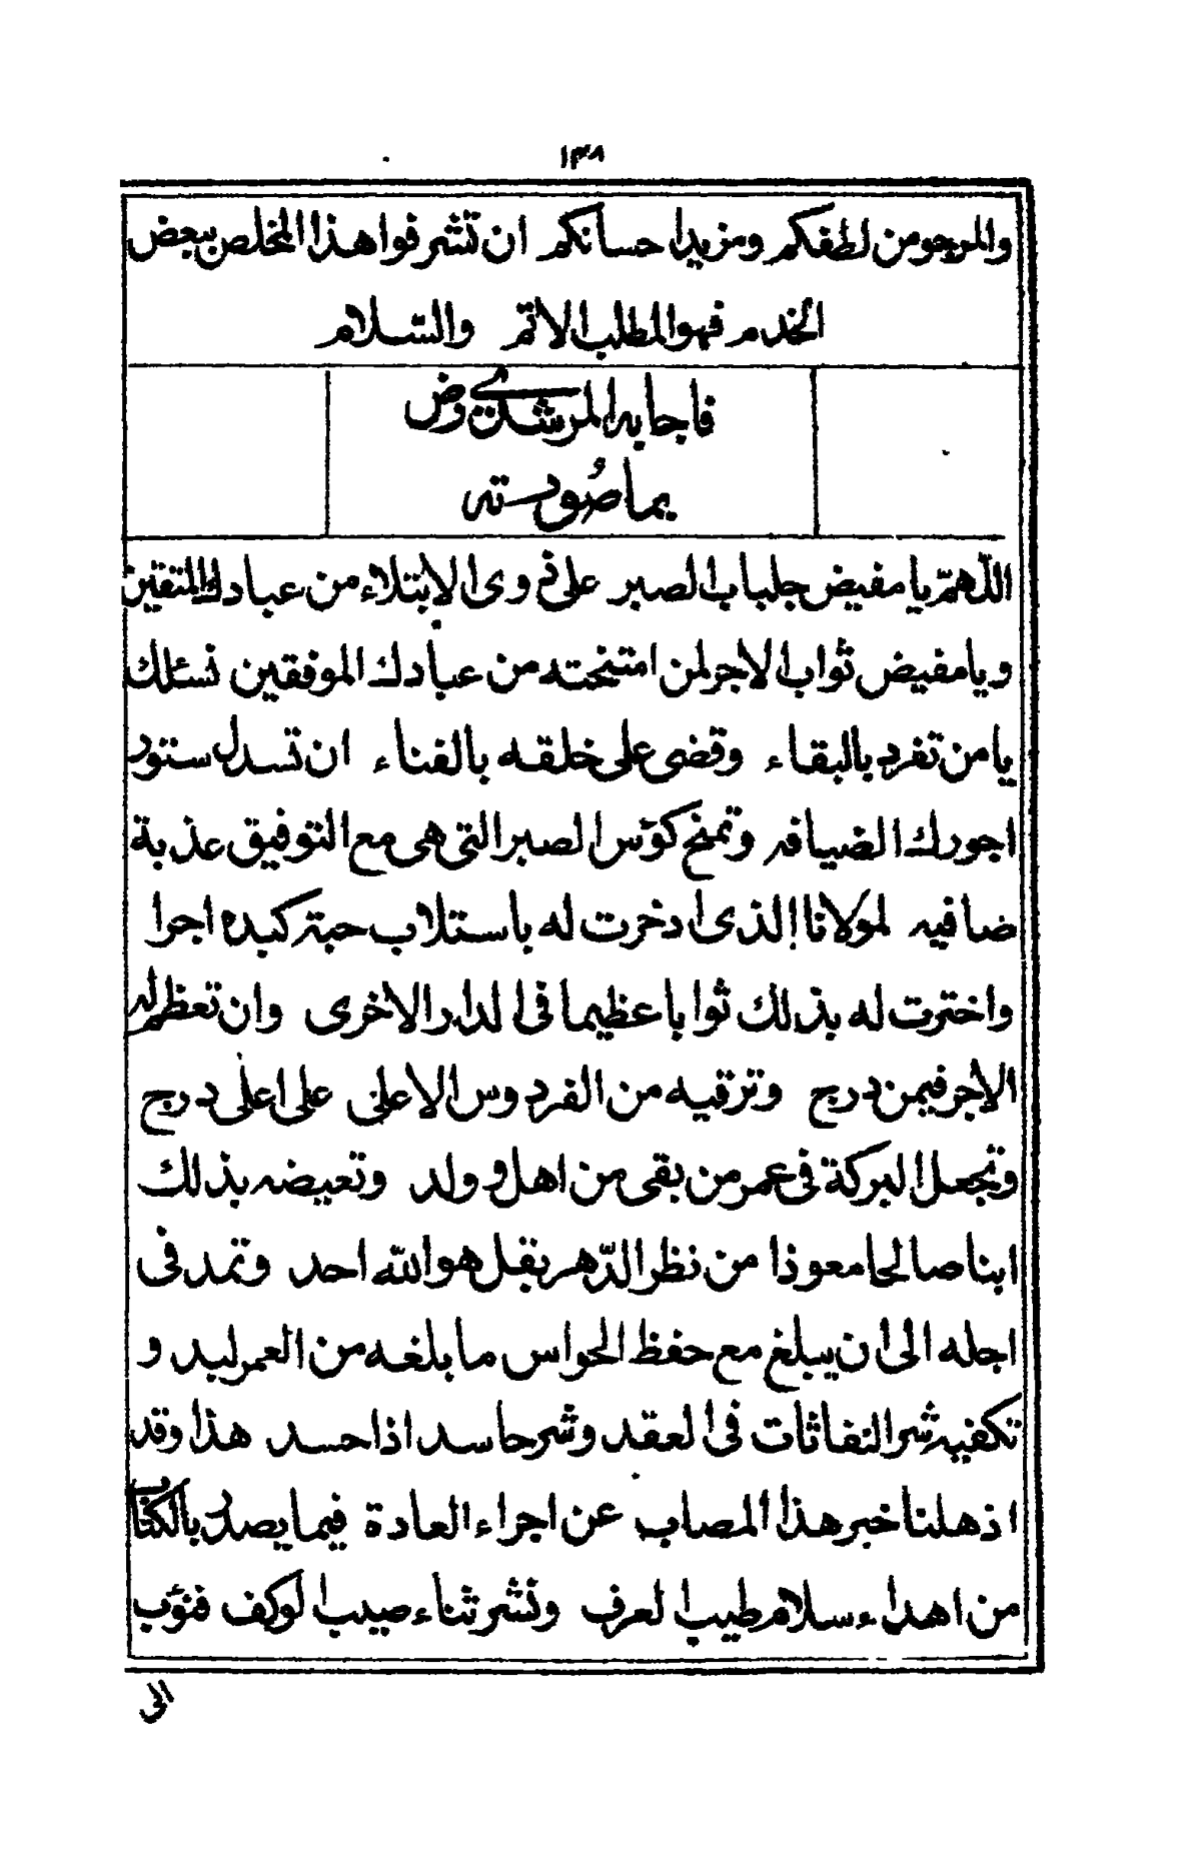 ١٣٨
والمرجو من لطفكم ومزيد احسانكم ان تشرفوا هذا المخلص ببعض
الخدم فهو المطلب الاتم والسّلام
فاجابه المرشدي وض
بما صُورته
اللّٰهمّ يا مفيض جلباب الصبر على ذوى الابتلاء من عبادك المتقين
ويا مفيض ثواب الاجر لمن امتنحته من عبادك الموفقين نسئلك
يا من تفرد بالبقاء وقضى على خلقه بالفناء ان تسدل ستور
اجورك الضيافه وتمنح كؤس الصبر التى هى مع التوفيق عذبة
ضافيه لمولانا الذى ادخرت له باستلاب حبة كبده اجرا
واخترت له بذلك ثوابا عظيما فى الدار الاخرى وان تعظم له
الاجر فيمن درج وترقيه من الفردوس الاعلى على اعلى درج
وتجعل البركة فى عمر من بقى من اهل وولد وتعيضه بذلك
ابنا صالحا معوذا من نظر الدّهر بقل هو اللّٰه احد وتمد فى
اجله الى أن يبلغ مع حفظ الحواس ما بلغه من العمر لبيد و
تكفيه شر النفاثات فى العقد وشر حاسد اذا حسد هذا وقد
اذهلنا خبر هذا المصاب عن اجراء العادة فيما يصدر بالكتاب
من اهداء سلام طيب العرف ونشر ثناء صيب الوكف فنؤب
الى